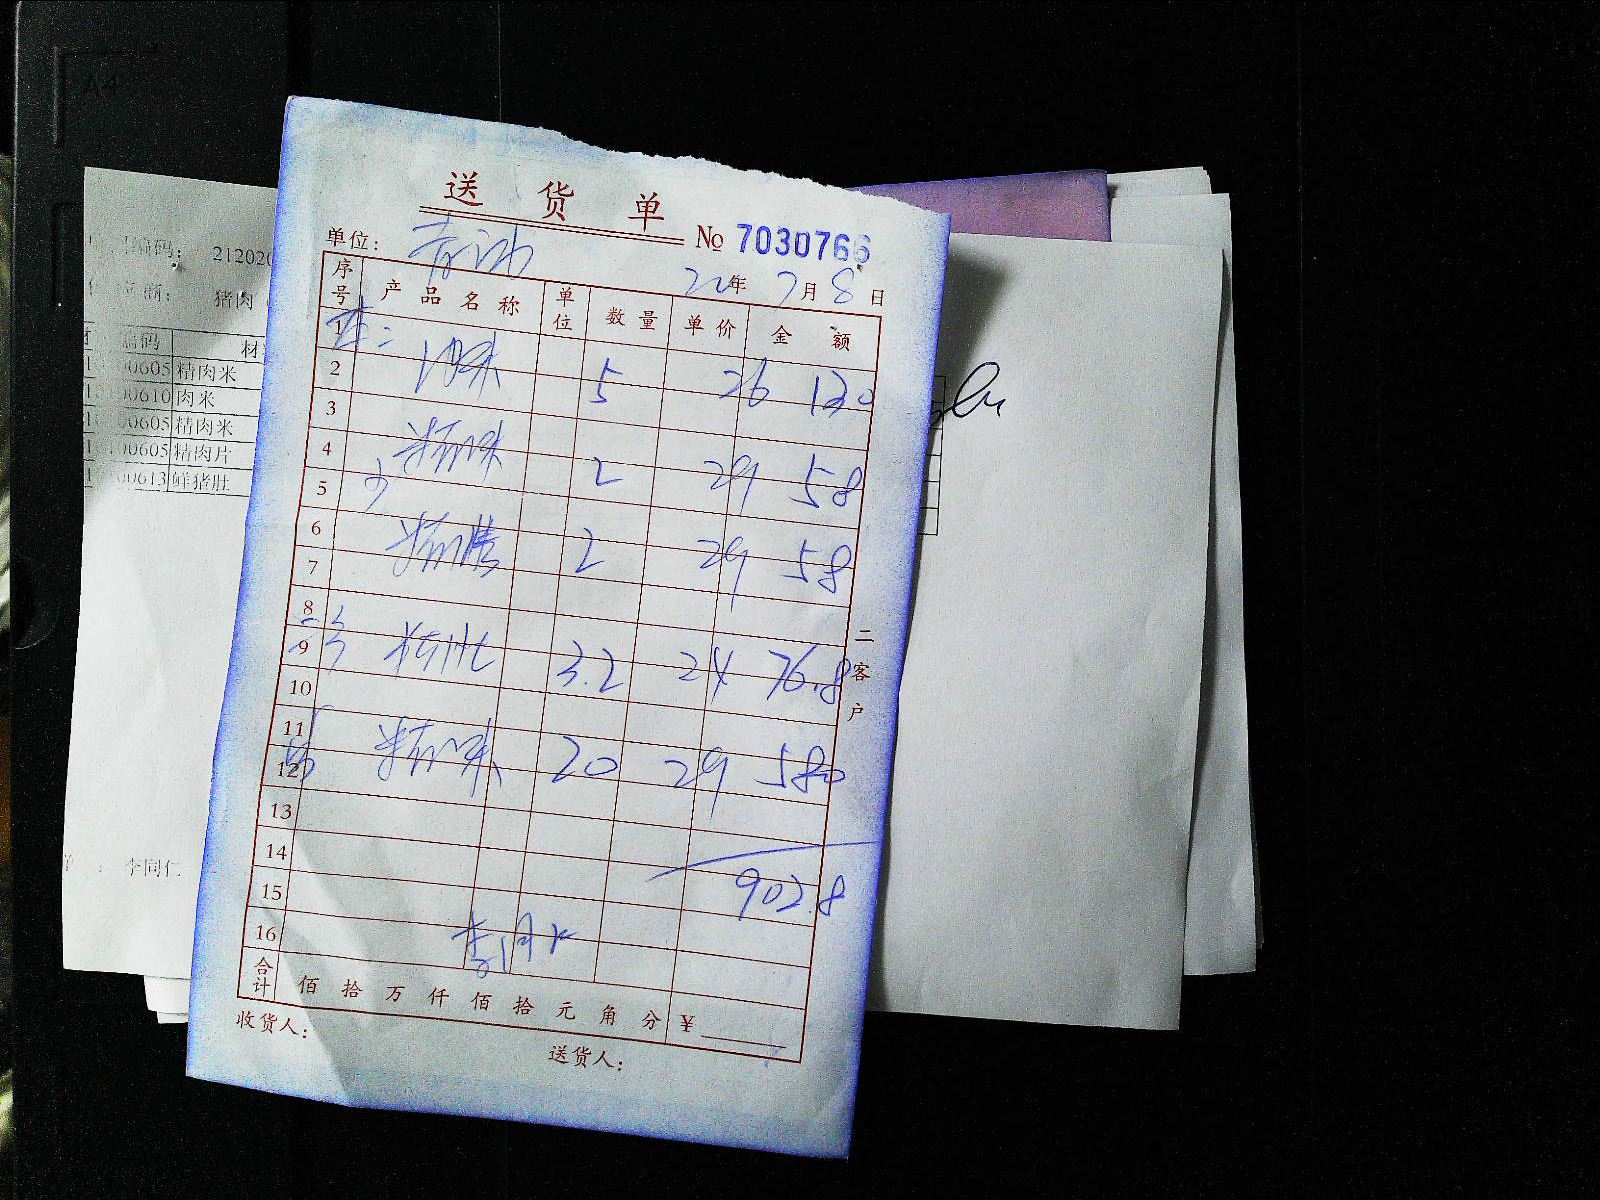 送货单
№ 7030766
单位：
20年7月8日
序号 产品名称 单位 数量 单价 金额
1
2 肉米 5 26 130
3
4 精肉米 2 29 58
5
6 2 29 58
7
8
9 3.2 24 76.8
10
11
12 精肉米 20 29 580
13
14
15 902.8
16 李同仁
合计 佰拾万仟佰拾元角分 ¥
收货人：
送货人：
二客户
编码： 21202
商： 猪肉
编码 材
00605 精肉米
00610 肉米
00605 精肉米
00605 精肉片
00613 鲜猪肚
李同仁
A4